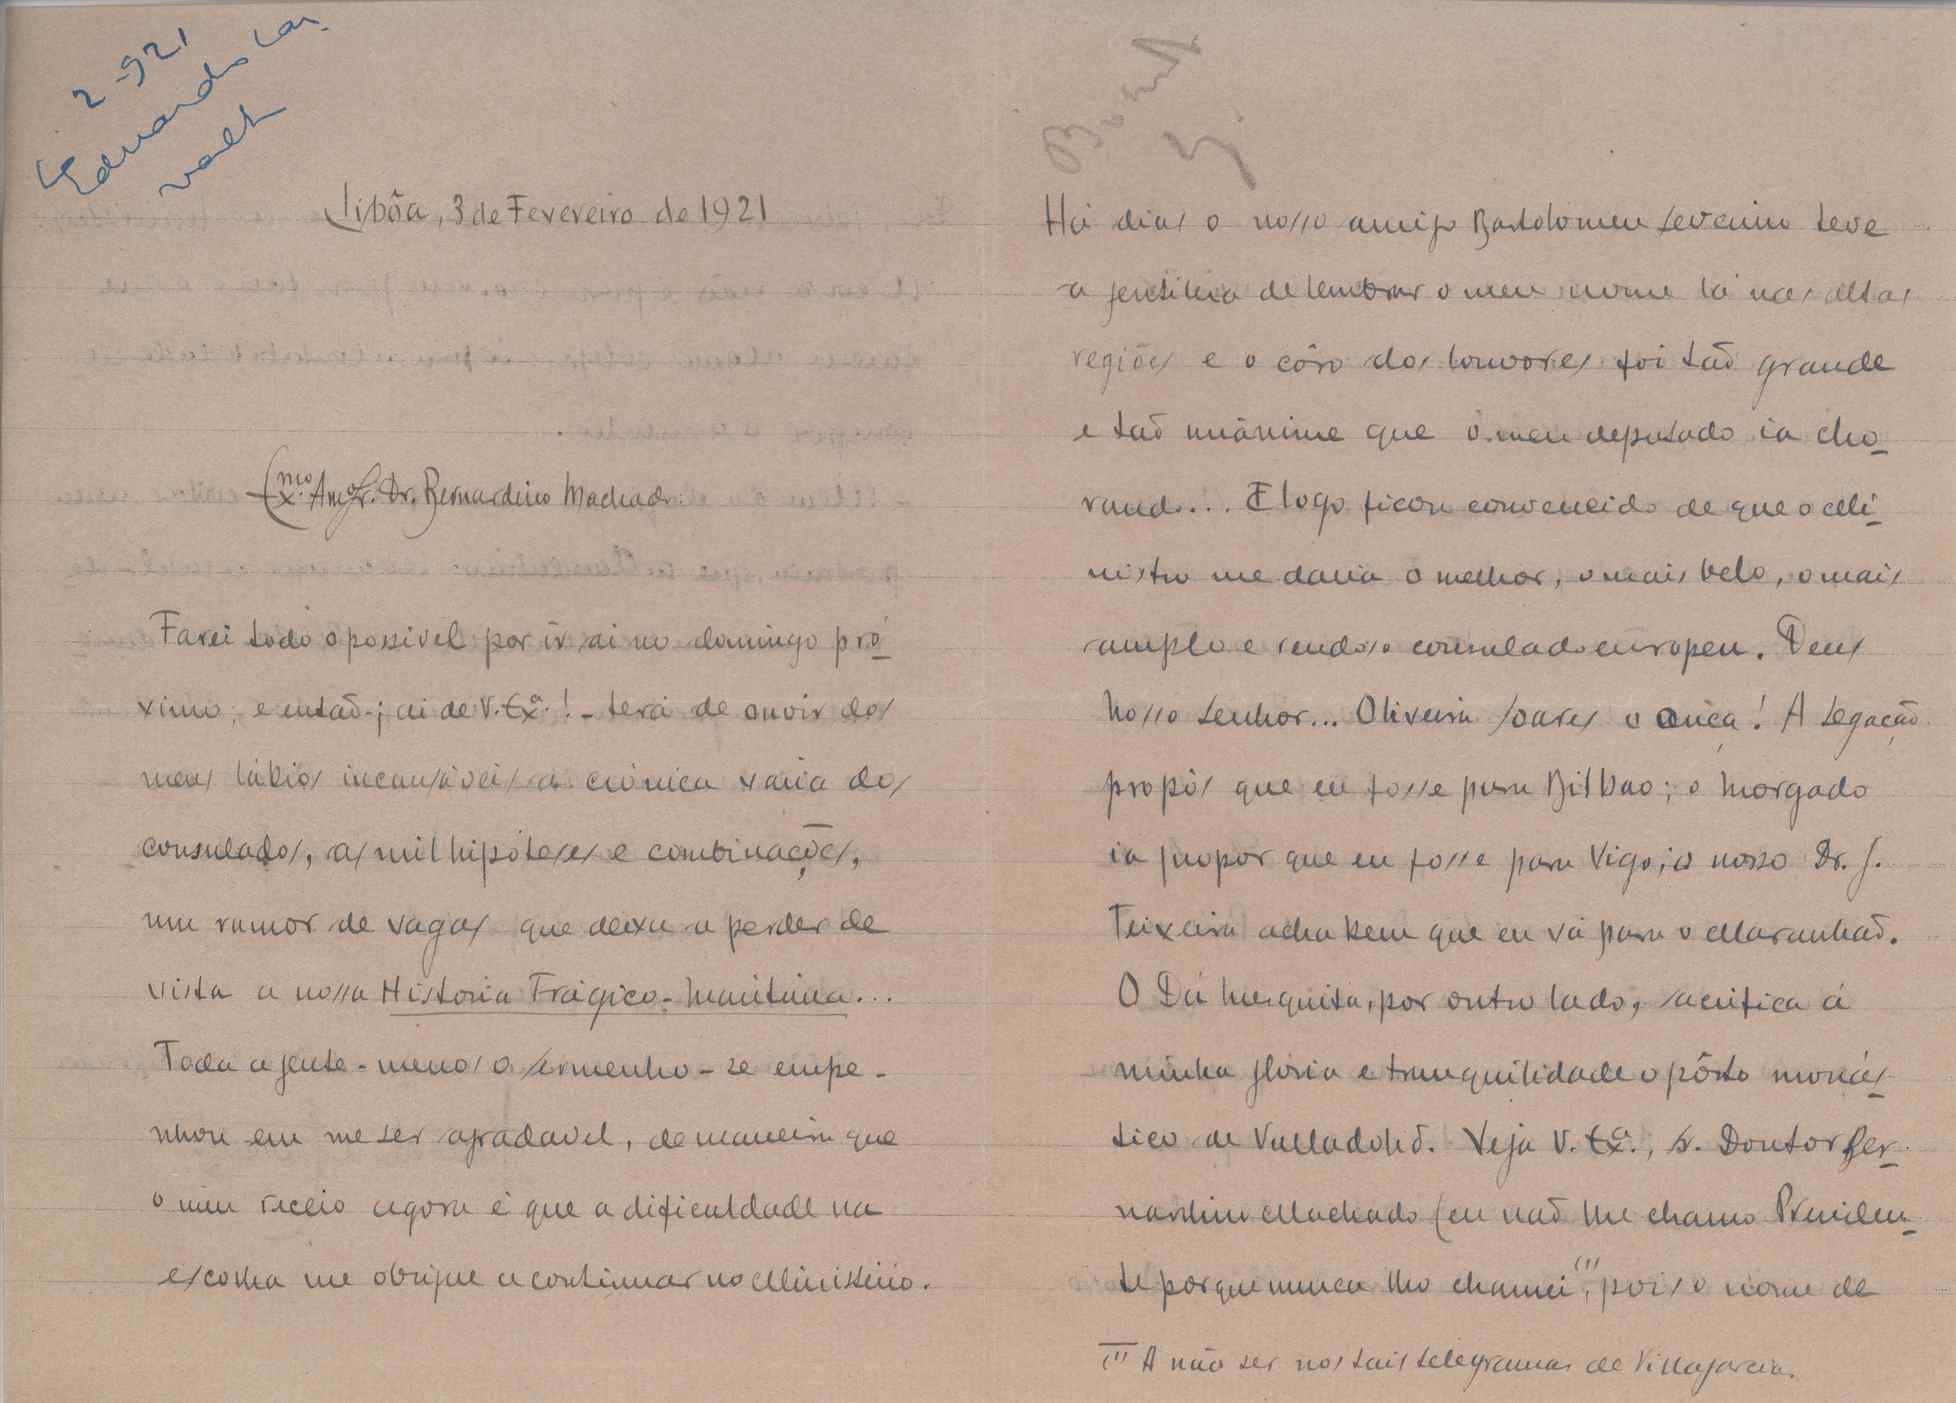 2-921
Eduardo Car
valh
Lisbôa, 3 de Fevereiro de 1921
Exmo. Amo. Sr. Dr. Bernardino Machado:
Farei todo o possivel por ir aí no domingo pró-
ximo, e então, ¡ ai de V. Exa.! - terá de ouvir dos
meus lábios incansáveis a crónica vária dos
consulados, as mil hipóteses e combinações,
um rumor de vagas que deixa a perder de
vista a nossa Historia Trágico-Maritima...
Toda a jente - menos o Sermenho - se empe-
nhou em me ser agradavel, de maneira que
o meu receio agora é que a dificuldade na
escolha me obrigue a continuar no Ministério.
Há dias o nosso amigo Bartolomeu Severino teve
a jentileza de lembrar o meu nome lá nas altas
regiões e o côro dos louvores foi tão grande
e tão unânime que o meu deputado ia cho-
rando... E logo ficou convencido de que o Mi-
nistro me daria o melhor, o mais belo, o mais
amplo e rendoso consulado europeu. Deus
Nosso Senhor... Oliveira Soares o ouça! A Legação
propôs que eu fosse para Bilbao; o Morgado
ia propor que eu fosse para Vigo; o nosso Dr. J.
Teixeira acha bem que eu vá para o Maranhão.
O Dá Mesquita, por outro lado, sacrifica á
minha glória e tranquilidade o pôsto monás-
tico de Valladolid. Veja V. Exa., Sr. Doutor Ber-
nardino Machado (eu não lhe chamo Presiden-
te porque nunca lho chamei (1), pois o nome de
(1) A não ser nos tais telegramas de Villagarcia.